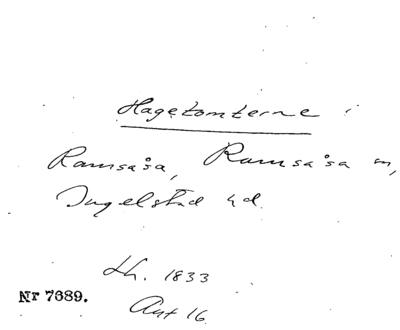 Hagetomterne i
Ramsåsa, Ramsåsa sn,
Ingelstad hd.
Lh. 1833
Nr 7689.
Akt 16